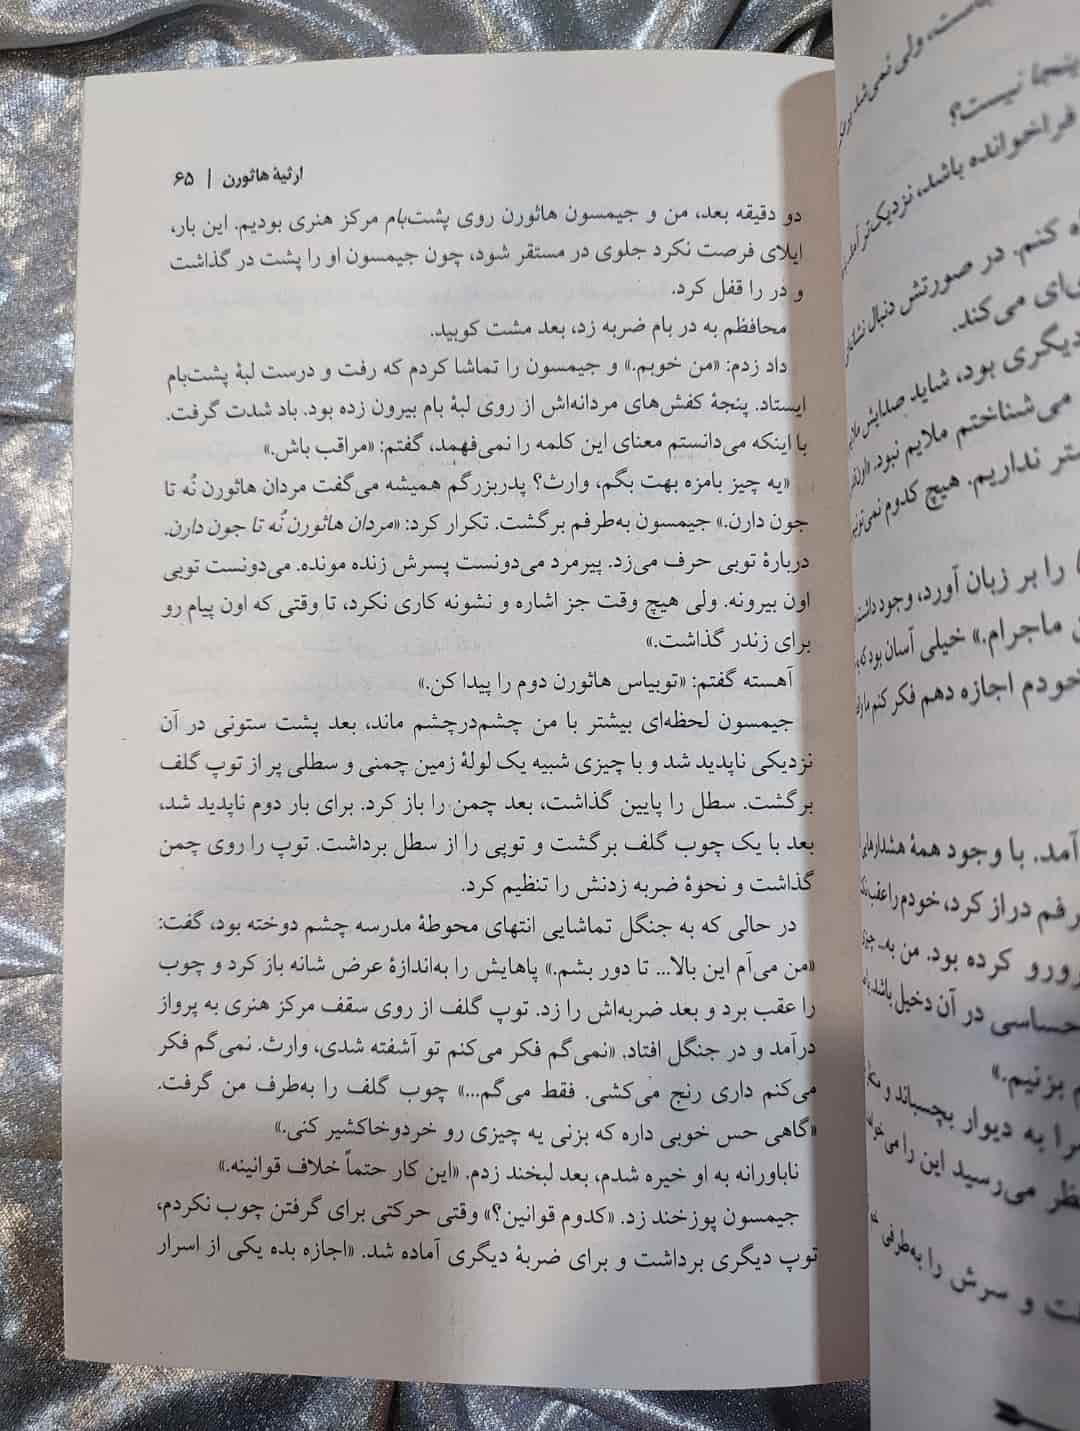 ارثیهٔ هاثورن | ۶۵
دو دقیقه بعد، من و جیمسون هاثورن روی پشت‌بام مرکز هنری بودیم. این بار،
ایلای فرصت نکرد جلوی در مستقر شود، چون جیمسون او را پشت در گذاشت
و در را قفل کرد.
محافظم به در بام ضربه زد، بعد مشت کوبید.
داد زدم: «من خوبم.» و جیمسون را تماشا کردم که رفت و درست لبهٔ پشت‌بام
ایستاد. پنجهٔ کفش‌های مردانه‌اش از روی لبهٔ بام بیرون زده بود. باد شدت گرفت.
با اینکه می‌دانستم معنای این کلمه را نمی‌فهمد، گفتم: «مراقب باش.»
«یه چیز بامزه بهت بگم، وارث؟ پدربزرگم همیشه می‌گفت مردان هاثورن نُه تا
جون دارن.» جیمسون به‌طرفم برگشت. تکرار کرد: «مردان هاثورن نُه تا جون دارن.
دربارهٔ توبی حرف می‌زد. پیرمرد می‌دونست پسرش زنده مونده. می‌دونست توبی
اون بیرونه. ولی هیچ وقت جز اشاره و نشونه کاری نکرد، تا وقتی که اون پیام رو
برای زندر گذاشت.»
آهسته گفتم: «توبیاس هاثورن دوم را پیدا کن.»
جیمسون لحظه‌ای بیشتر با من چشم‌درچشم ماند، بعد پشت ستونی در آن
نزدیکی ناپدید شد و با چیزی شبیه یک لولهٔ زمین چمنی و سطلی پر از توپ گلف
برگشت. سطل را پایین گذاشت، بعد چمن را باز کرد. برای بار دوم ناپدید شد،
بعد با یک چوب گلف برگشت و توپی را از سطل برداشت. توپ را روی چمن
گذاشت و نحوهٔ ضربه زدنش را تنظیم کرد.
در حالی که به جنگل تماشایی انتهای محوطهٔ مدرسه چشم دوخته بود، گفت:
«من می‌آم این بالا... تا دور بشم.» پاهایش را به‌اندازهٔ عرض شانه باز کرد و چوب
را عقب برد و بعد ضربه‌اش را زد. توپ گلف از روی سقف مرکز هنری به پرواز
درآمد و در جنگل افتاد. «نمی‌گم فکر می‌کنم تو آشفته شدی، وارث. نمی‌گم فکر
می‌کنم داری رنج می‌کشی. فقط می‌گم...» چوب گلف را به‌طرف من گرفت.
«گاهی حس خوبی داره که بزنی یه چیزی رو خردوخاکشیر کنی.»
ناباورانه به او خیره شدم، بعد لبخند زدم. «این کار حتماً خلاف قوانینه.»
جیمسون پوزخند زد. «کدوم قوانین؟» وقتی حرکتی برای گرفتن چوب نکردم،
توپ دیگری برداشت و برای ضربهٔ دیگری آماده شد. «اجازه بده یکی از اسرار
ولی نمی‌شد
ینجا نیست؟
فراخوانده باشد، نزدیک‌تر
ه کنم. در صورتش دنبال
‌ای می‌کند.
دیگری بود، شاید صدایش
می‌شناختم ملایم نبود.
ستر نداریم. هیچ کدوم
را بر زبان آورد، وجود
ن ماجرام.» خیلی آسان بود که
خودم اجازه دهم فکر کنم
آمد. با وجود همهٔ هشدارهایی
رفم دراز کرد، خودم را
رورو کرده بود. من به...
حساسی در آن دخیل باشد.
م بزنیم.»
مرا به دیوار بچسباند و
ظر می‌رسید این را
ت و سرش را به‌طرفی